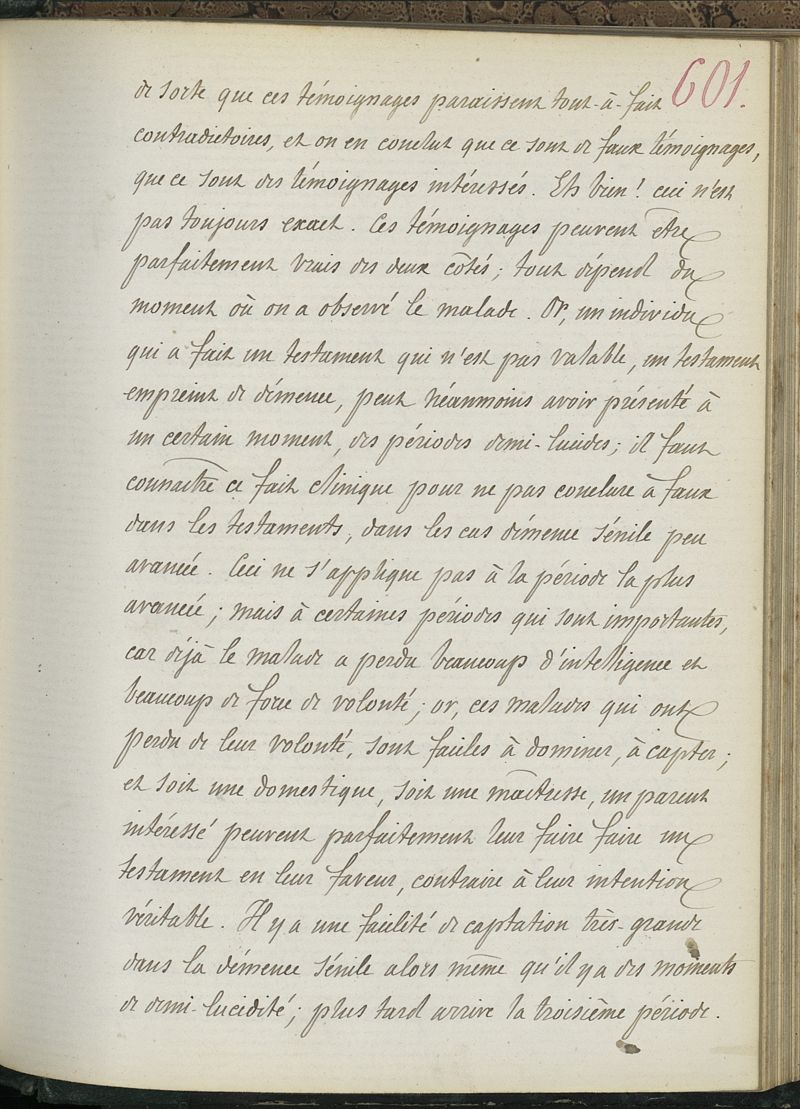 601.
de sorte que ces témoignages paraissent tout-à-fait
contradictoires, et on en conclut que ce sont de faux témoignages,
que ce sont des témoignages intéressés. Eh bien! ceci n'est
pas toujours exact. Ces témoignages peuvent être
parfaitement vrais des deux côtés; tout dépend du
moment où on a observé le malade. Or, un individu
qui a fait un testament qui n'est pas valable, un testament
empreint de démence, peut néanmoins avoir présenté à
un certain moment, des périodes demi-lucides; il faut
connaître ce fait clinique pour ne pas conclure à faux
dans les testaments, dans les cas démence sénile peu
avancée. Ceci ne s'applique pas à la période la plus
avancée; mais à certaines périodes qui sont importantes,
car déjà le malade a perdu beaucoup d'intelligence et
beaucoup de force de volonté; or, ces malades qui ont
perdu de leur volonté, sont faciles à dominer, à capter;
et soit une domestique, soit une maîtresse, un parent
intéressé peuvent parfaitement leur faire faire un
testament en leur faveur, contraire à leur intention
véritable. Il y a une facilité de captation très-grande
dans la démence sénile alors même qu'il y a des moments
de demi-lucidité; plus tard arrive la troisième période.